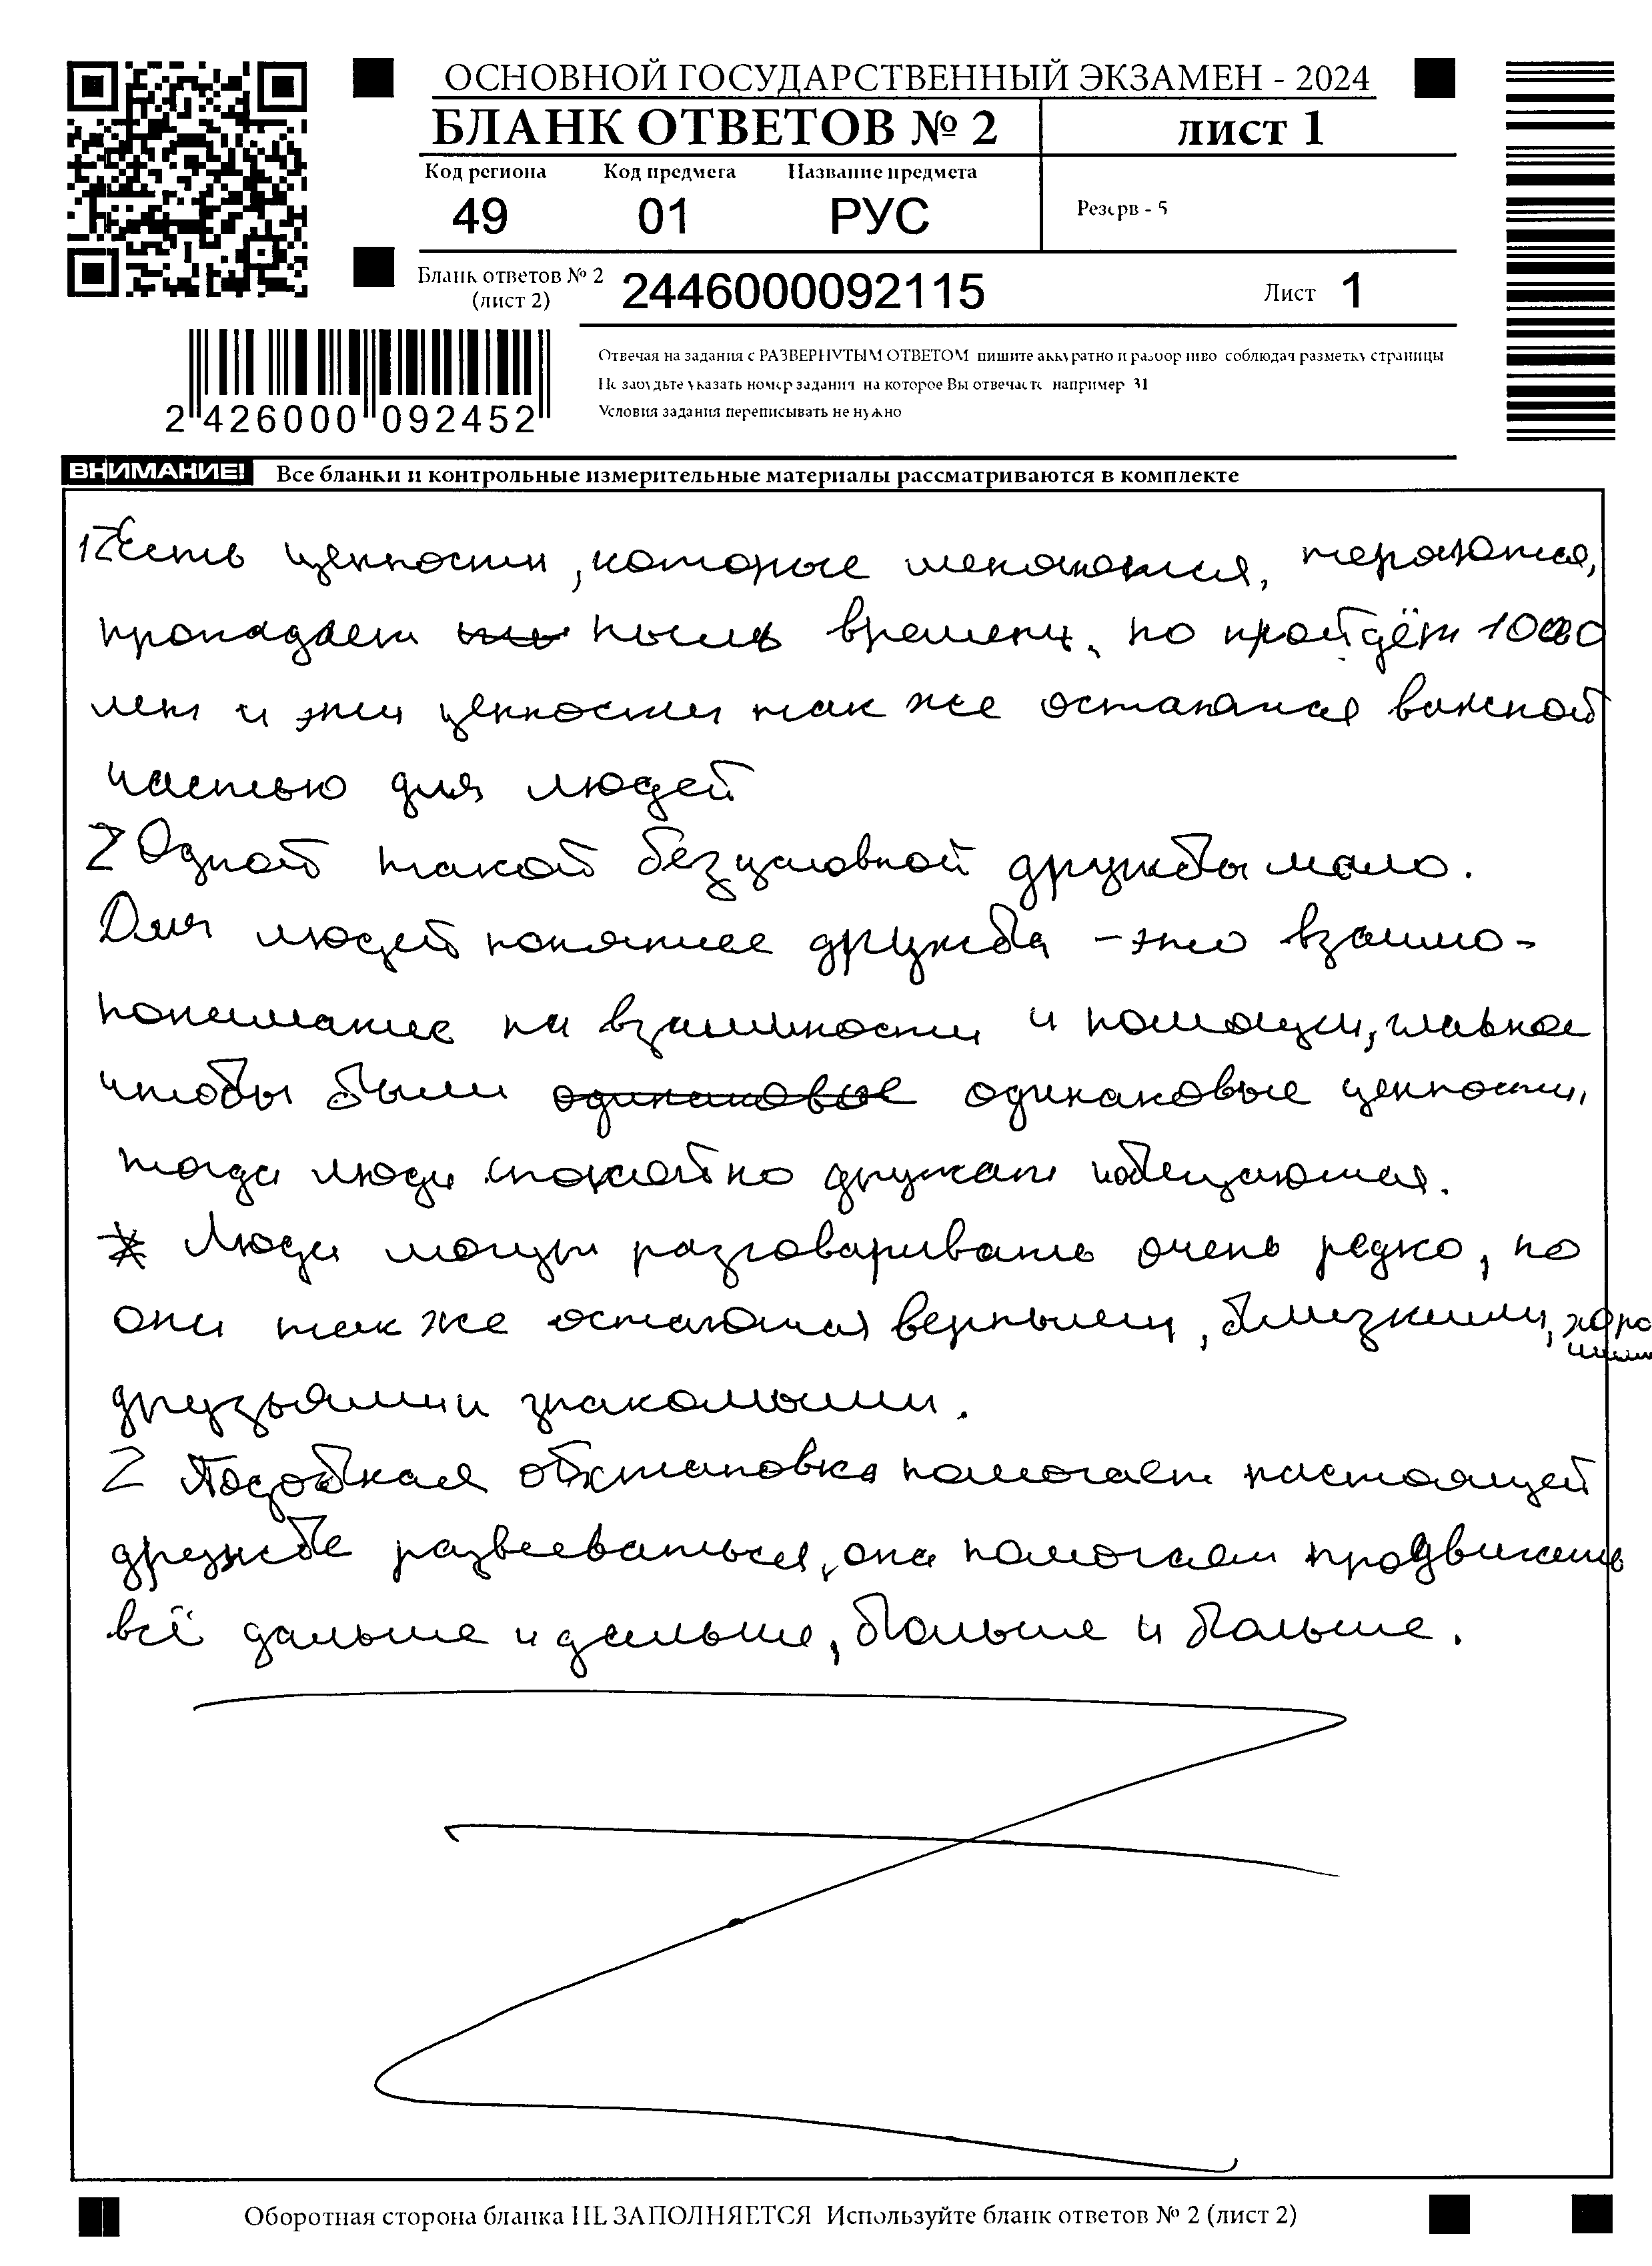 ОСНОВНОЙ ГОСУДАРСТВЕННЫЙ ЭКЗАМЕН - 2024
БЛАНК ОТВЕТОВ № 2
лист 1
Код региона Код предмета Название предмета
49 01 РУС
Резерв - 5
Бланк ответов № 2
(лист 2)
2446000092115
Лист 1
2 426000 092452
Отвечая на задания с РАЗВЕРНУТЫМ ОТВЕТОМ пишите аккуратно и разборчиво соблюдая разметку страницы
Не забудьте указать номер задания на которое Вы отвечаете например 31
Условия задания переписывать не нужно
ВНИМАНИЕ! Все бланки и контрольные измерительные материалы рассматриваются в комплекте
1Z Есть ценности, которые меняются, теряются,
пропадает пыль времени, но пройдёт 1000
лет и эти ценности так же остаются важной
частью для людей
Z Одной такой безусловной дружбы мало.
Для людей понятнее дружба – это взаимо-
понимание на взаимности и помощи, главное
чтобы были одинаковые ценности,
тогда люди спокойно дружат и общаются.
Люди могут разговаривать очень редко, но
они так же остаются верными, близкими, хоро
шими
друзьями и знакомыми.
Z Подобная обстановка помогает настоящей
дружбе развееваться, она помогает продвигать
всё дальше и дальше, больше и больше.
Оборотная сторона бланка НЕ ЗАПОЛНЯЕТСЯ Используйте бланк ответов № 2 (лист 2)